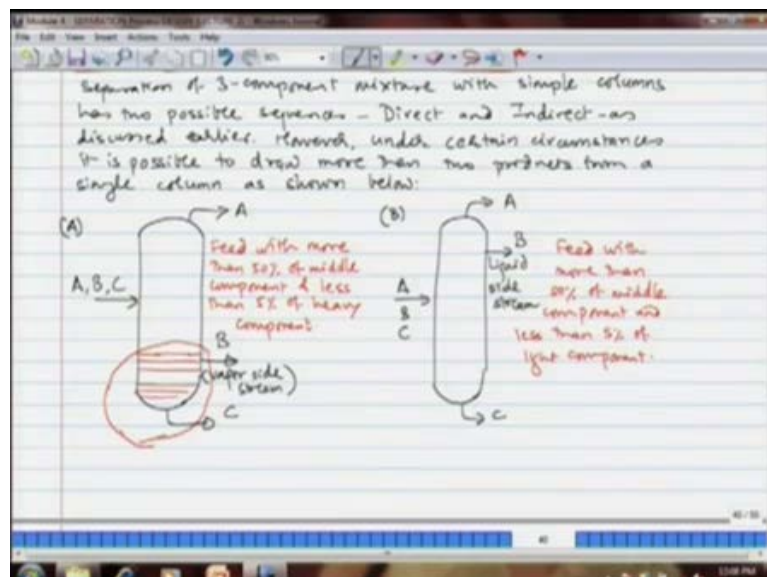 Module 4 - SEPARATION Process DESIGN (LECTURE 2) - Windows Journal
File Edit View Insert Actions Tools Help
separation of 3-component mixture with simple columns
has two possible sequences - Direct and Indirect - as
discussed earlier. However, under certain circumstances
it is possible to draw more than two products from a
single column as shown below:
(A)
A
Feed with more
than 50% of middle
component & less
than 5% of heavy
component.
A, B, C
B
(vapor side
stream)
C
(B)
A
B
Liquid
side
stream
A
B
C
Feed with
more than
50% of middle
component and
less than 5% of
light component.
C
40